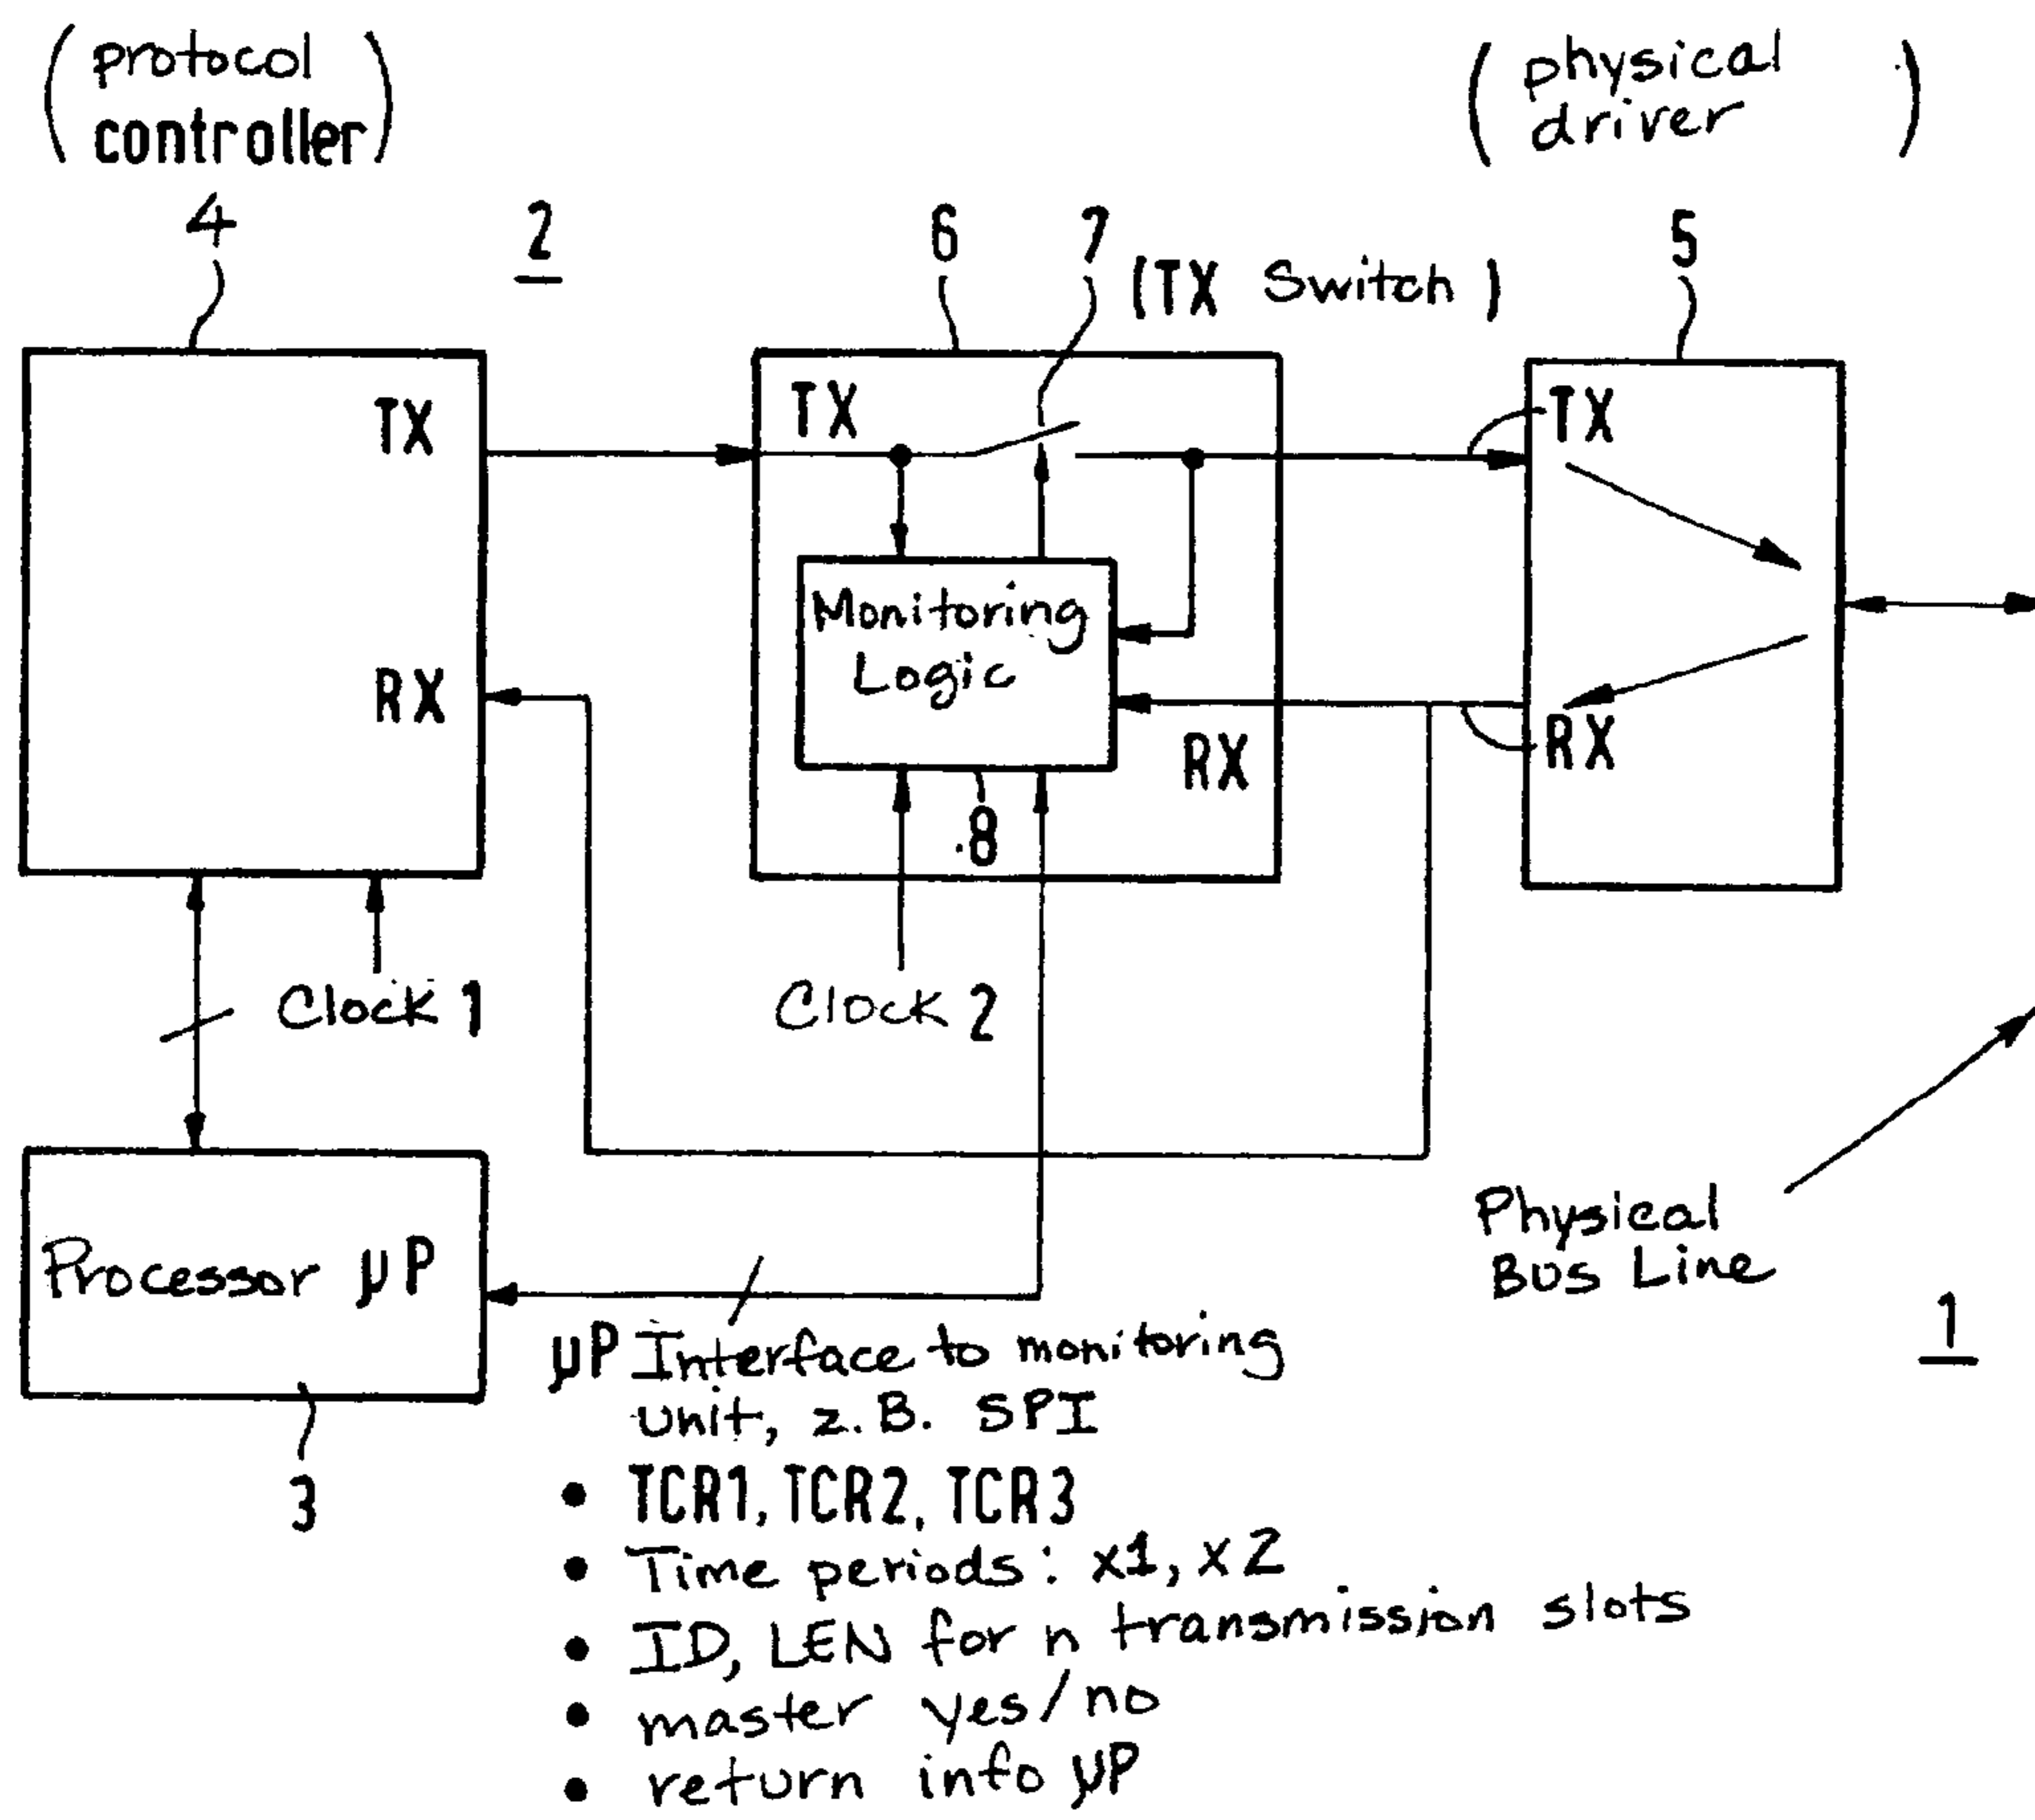 (protocol
controller)
(physical
driver)
4
2
6
7
(TX Switch)
5
TX
TX
TX
Monitoring
Logic
RX
RX
RX
8
Clock 1
Clock 2
Processor μP
Physical
Bus Line
1
μP Interface to monitoring
unit, z.B. SPI
3
• TCR1, TCR2, TCR3
• Time periods: x1, x2
• ID, LEN for n transmission slots
• master yes/no
• return info μP